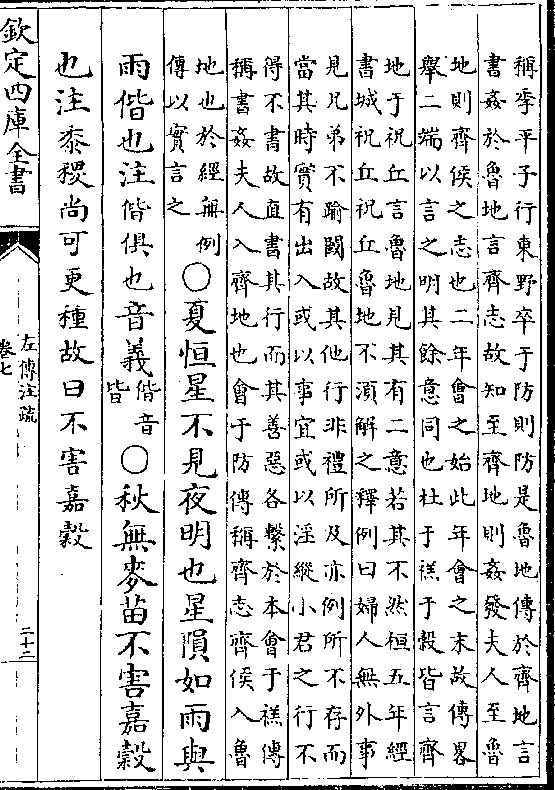 稱季平子行東野卒于防則防是魯地傳於齊地言
書姦於魯地言齊志故知至齊地則姦發夫人至魯
地則齊侯之志也二年會之始此年會之末故傳畧
舉二端以言之明其餘意同也杜于禚于穀皆言齊
地于祝丘言魯地見其有二意若其不然桓五年經
書城祝丘祝丘魯地不湏解之釋例曰婦人無外事
見兄弟不踰閾故其他行非禮所及亦例所不存而
當其時實有出入或以事宜或以淫縱小君之行不
得不書故直書其行而其善惡各繫於本會于禚傳
稱書姦夫人入齊地也會于防傳稱齊志齊侯入魯
地也於經無例
傳以實言之
○夏恒星不見夜明也星隕如雨與
雨偕也注偕俱也音義
偕音
皆
○秋無麥苗不害嘉穀
也注黍稷尚可更種故曰不害嘉穀
欽定四庫全書
左傳注疏
卷七
二十二